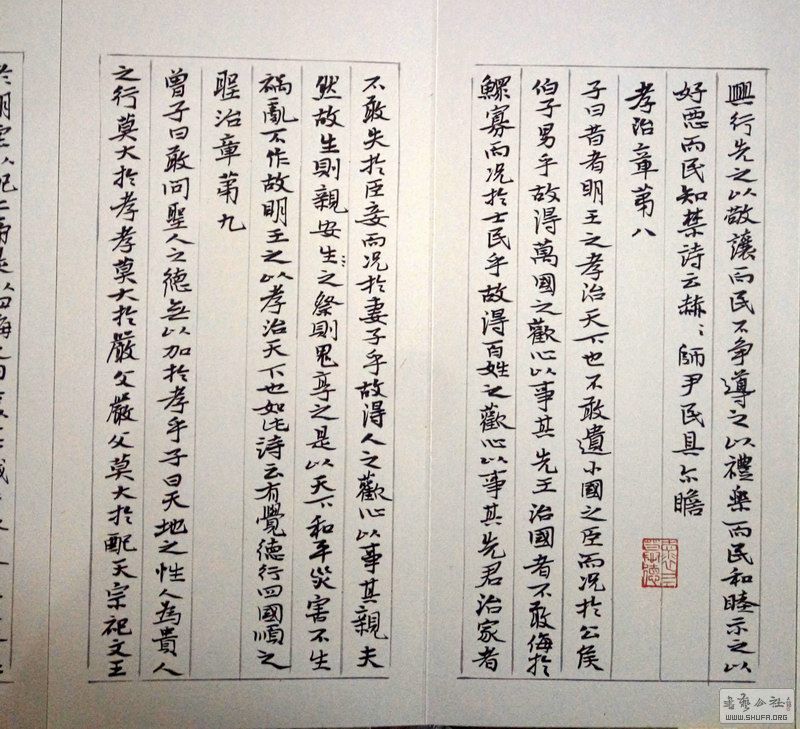 興行先之以敬讓而民不争導之以禮樂而民和睦示之以
好惡而民知禁詩云赫〻師尹民具尒瞻
孝治章第八
子曰昔者明王之孝治天下也不敢遺小國之臣而况於公侯
伯子男乎故得萬國之歡心以事其先王治國者不敢侮於
鰥寡而况於士民乎故得百姓之歡心以事其先君治家者
不敢失於臣妾而况於妻子乎故得人之歡心以事其親夫
然故生則親安生之祭則鬼享之是以天下和平災害不生
禍亂不作故明王之以孝治天下也如此詩云有覺德行四國順之
聖治章第九
曾子曰敢问聖人之德無以加於孝乎子曰天地之性人為貴人
之行莫大於孝孝莫大於嚴父嚴父莫大於配天宗祀文王
WWW.SHUFA.ORG